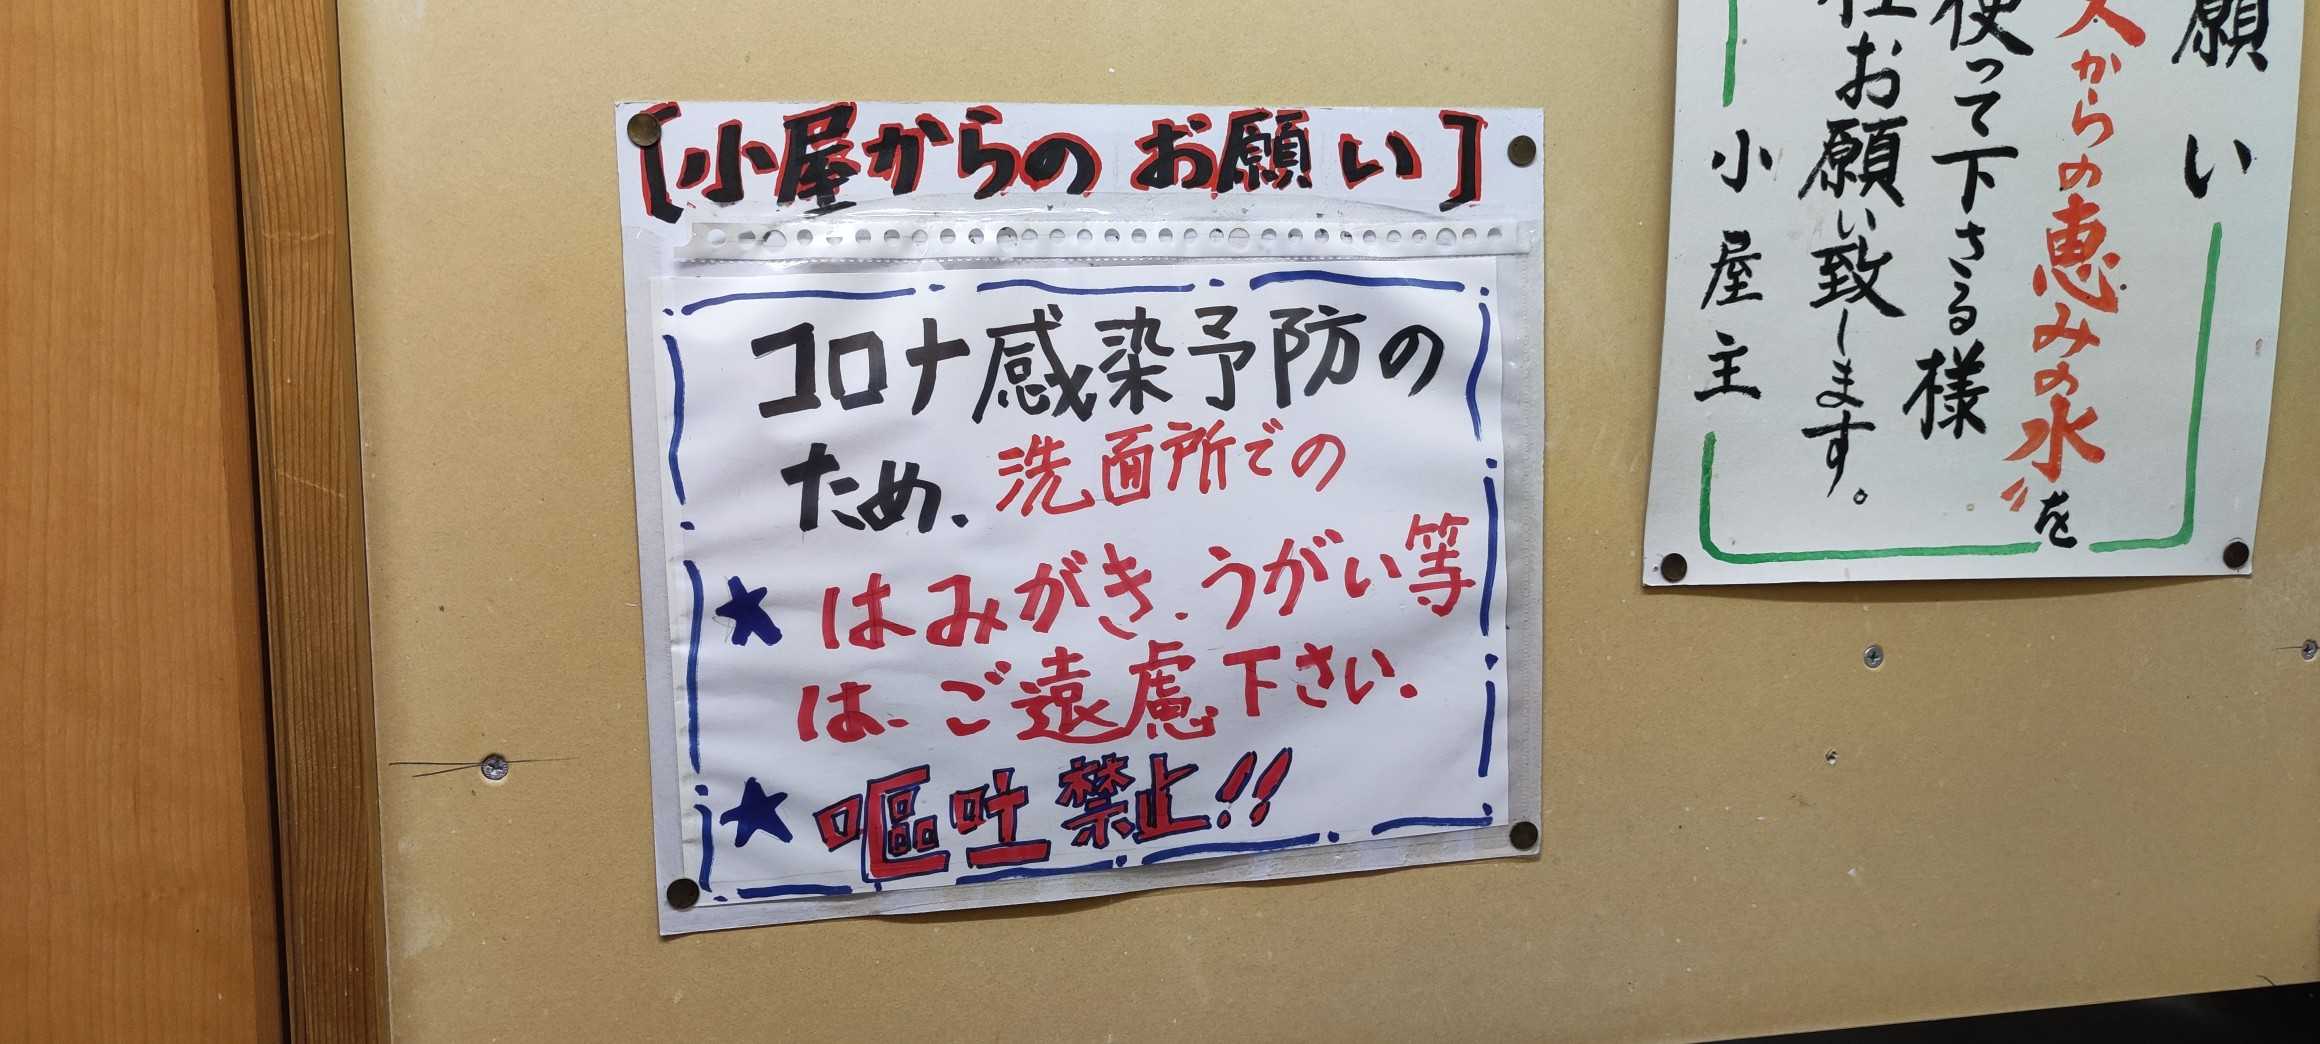 [小屋からのお願い]
コロナ感染予防の
ため、洗面所での
★はみがき、うがい等
は、ご遠慮下さい。
★嘔吐禁止!!
願い
からの恵みの水〃を
使って下さる様
お願い致します。
小屋主